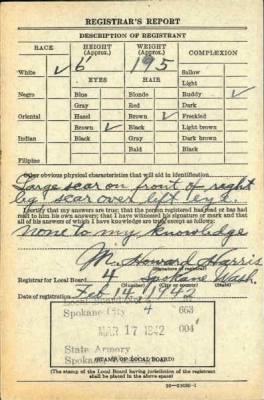 REGISTRAR'S REPORT
DESCRIPTION OF REGISTRANT
RACE HEIGHT (Approx.) WEIGHT (Approx.) COMPLEXION
White ✓ 6' 195 Sallow
EYES HAIR Light
Negro Blue Blonde Ruddy ✓
Gray Red Dark
Oriental Hazel Brown ✓ Freckled
Brown ✓ Black Light brown
Indian Black Gray Dark brown
Bald Black
Filipino
Other obvious physical characteristics that will aid in identification
Large scar on front of right
leg, scar over left eye.
I certify that my answers are true; that the person registered has read or has had
read to him his own answers; that I have witnessed his signature or mark and that
all of his answers of which I have knowledge are true, except as follows:
None to my knowledge
M. Howard Harris
(Signature of registrar)
Registrar for Local Board 4 Spokane Wash.
(Number) (City or county) (State)
Date of registration Feb 14 1942
Spokane City 4 063
MAR 17 1942 004
State Armory
Spokane
(STAMP OF LOCAL BOARD)
(The stamp of the Local Board having jurisdiction of the registrant
shall be placed in the above space)